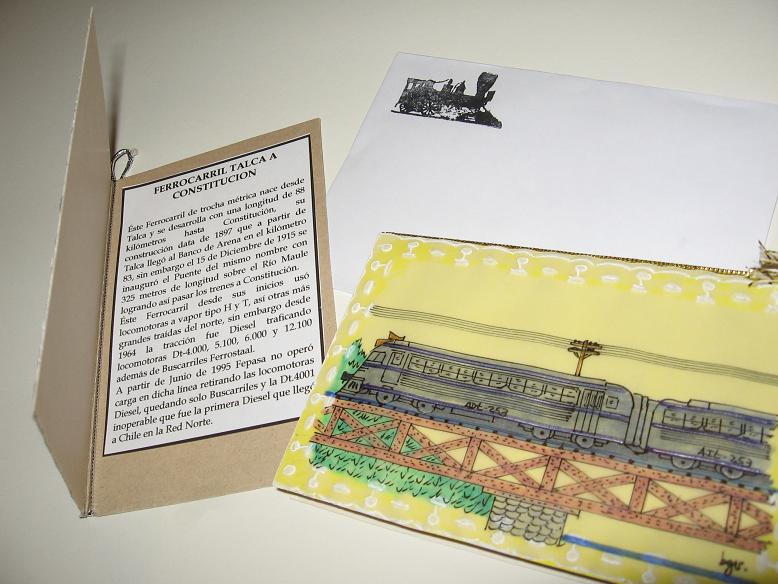 FERROCARRIL TALCA A
CONSTITUCION
Éste Ferrocarril de trocha métrica nace desde
Talca y se desarrolla con una longitud de 88
kilómetros hasta Constitución, su
construcción data de 1897 que a partir de
Talca llegó al Banco de Arena en el kilómetro
83, sin embargo el 15 de Diciembre de 1915 se
inauguró el Puente del mismo nombre con
325 metros de longitud sobre el Río Maule
logrando así pasar los trenes a Constitución.
Éste Ferrocarril desde sus inicios usó
locomotoras a vapor tipo H y T, así otras más
grandes traídas del norte, sin embargo desde
1964 la tracción fue Diesel traficando
locomotoras Dt-4.000, 5.100, 6.000 y 12.100
además de Buscarriles Ferrostaal.
A partir de Junio de 1995 Fepasa no operó
carga en dicha línea retirando las locomotoras
Diesel, quedando solo Buscarriles y la Dt.4001
inoperable que fue la primera Diesel que llegó
a Chile en la Red Norte.
ADI-253
ADI-253